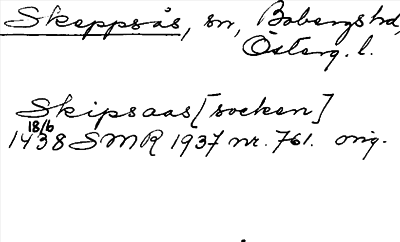 Skeppsås, sn, Bobergs hd,
Österg. l.
Skipsaas [socken]
18/6
1438 SMR 1937 nr. 761. orig.